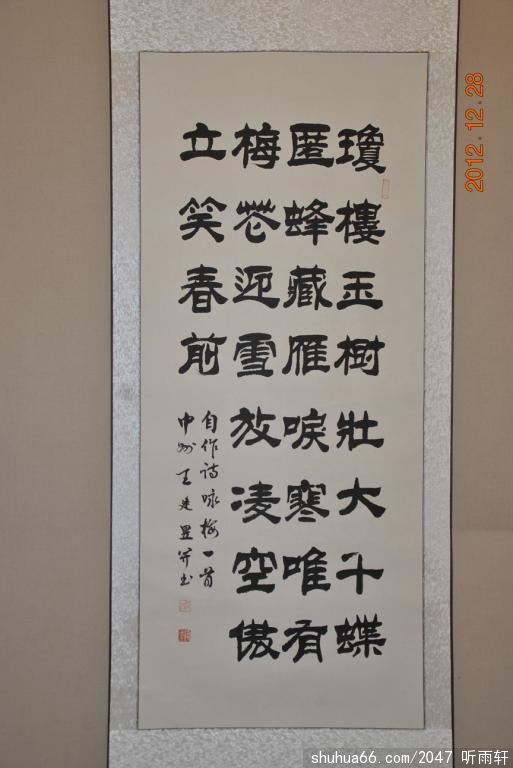 瓊樓玉樹壯大千蝶
匿蜂藏雁唳寒唯有
梅花迎雪放凌空傲
立笑春前
自作詩咏梅一首
中州王建
并书
2012.12.28
shuhua66.com/2047 听雨轩